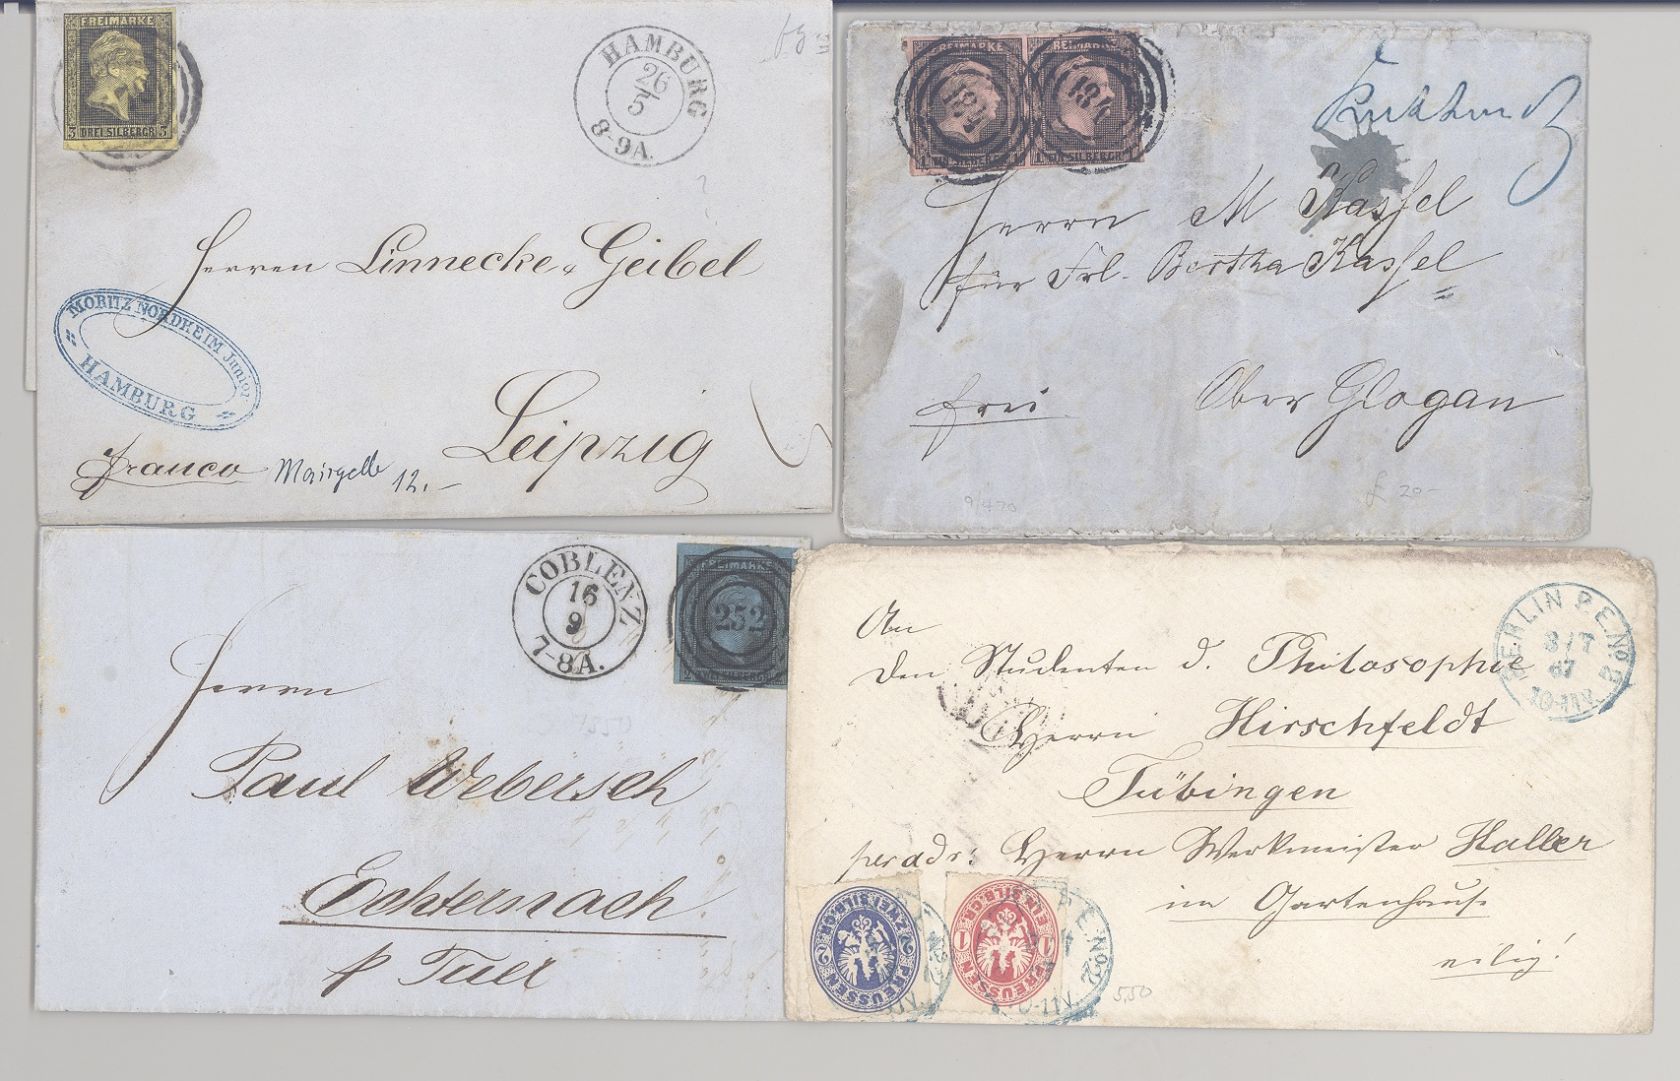 FREIMARKE
3 DREI SILBERGR. 3
HAMBURG
26
5
8-9A.
Herren Linnecke & Geibel
MORITZ NORDHEIM Junior.
HAMBURG
Leipzig
franco Maingelb 12.-
FREIMARKE FREIMARKE
1 EIN SILBERGR. 1 EIN SILBERGR.
Herrn M Kassel
für Frl. Bertha Kassel
frei Ober Glogau
£ 20-
COBLENZ
16
9
7-8A.
FREIMARKE
252
Herrn
Paul Webersch
Echternach
p Trier
BERLIN P.E.No 2
3/7
67
10-11V.
An
den Studenten d. Philosophie
Herrn Hirschfeldt
Tübingen
per adr: Herrn Werkmeister Haller
im Gartenhause
eilig!
PREUSSEN 2 ZWEI SILB.GR. 2
PREUSSEN 1 EIN SILB.GR. 1
P.E.No 2
5,50